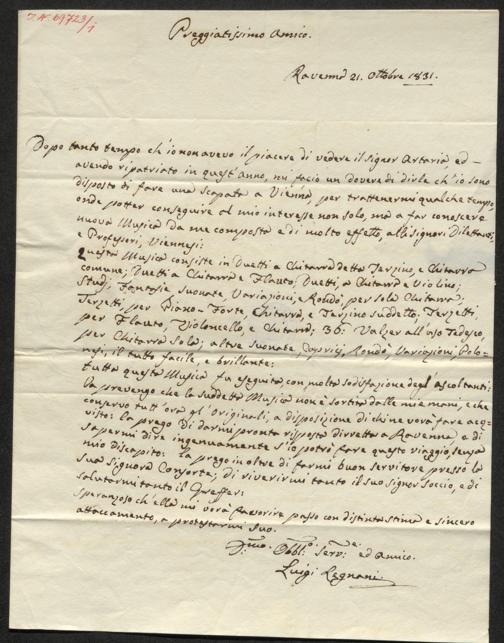 I.N. 69723/1
Preggiatissimo Amico.
Ravenna 21. Ottobre 1831.
Dopo tanto tempo ch'io non avevo il piacere di vedere il Signor Artaria ed
avendo ripatriato in quest'anno, mi facio un dovere di dirle ch'io sono
disposto di fare una scapata a Vienna, per trattenermi qualche tempo,
onde potter conseguire al mio interesse non solo, ma a far conoscere
nuova Musica da me composta e di molto effetto, alli Signori Dilettanti,
e Professori, Viennesi:
Questa Musica consiste in Duetti a Chitarra detta Terzino, e Chitarra
comune; Duetti a Chitarra e Flauto; Duetti, a Chitarra e Violino;
Studj, Fantasie, Suonate, Variazioni, e Rondò, per Sola Chitarra;
Terzetti, per Piano-Forte, Chitarra, e Terzino suddetto; Terzetti,
per Flauto, Violoncello, e Chitarra; 36: Valzer all'uso Tedesco,
per Chitarra Sola; altre Suonate, Capricj, Rondò, Variazioni, Polo-
nesi, il tutto facile, e brillante:
Tutta questa Musica fu seguita con molta sodisfazione degl'ascoltanti:
la prevengo che la suddetta Musica non è sortita dalle mie mani, e che
conservo tutt'ora gl'Originali, a disposizione di chi ne vorà fare acq-
uisto: la prego di darmi pronta risposta dirretta a Ravenna, e di
sapermi dire ingenuamente s'io potrò fare questo viaggio, senza
mio discapito: La prego inoltre di farmi buon servitore presso la
sua Signora Consorte; di riverirmi tanto il suo Signor Soccio, e di
salutarmi tanto il Greffer:
Speranzoso ch'ella mi vorà favorire passo con distinta stima e sincero
attaccamento, a protestarmi Suo.
Obbl: Serv: ed Amico.
Luigi Legnani